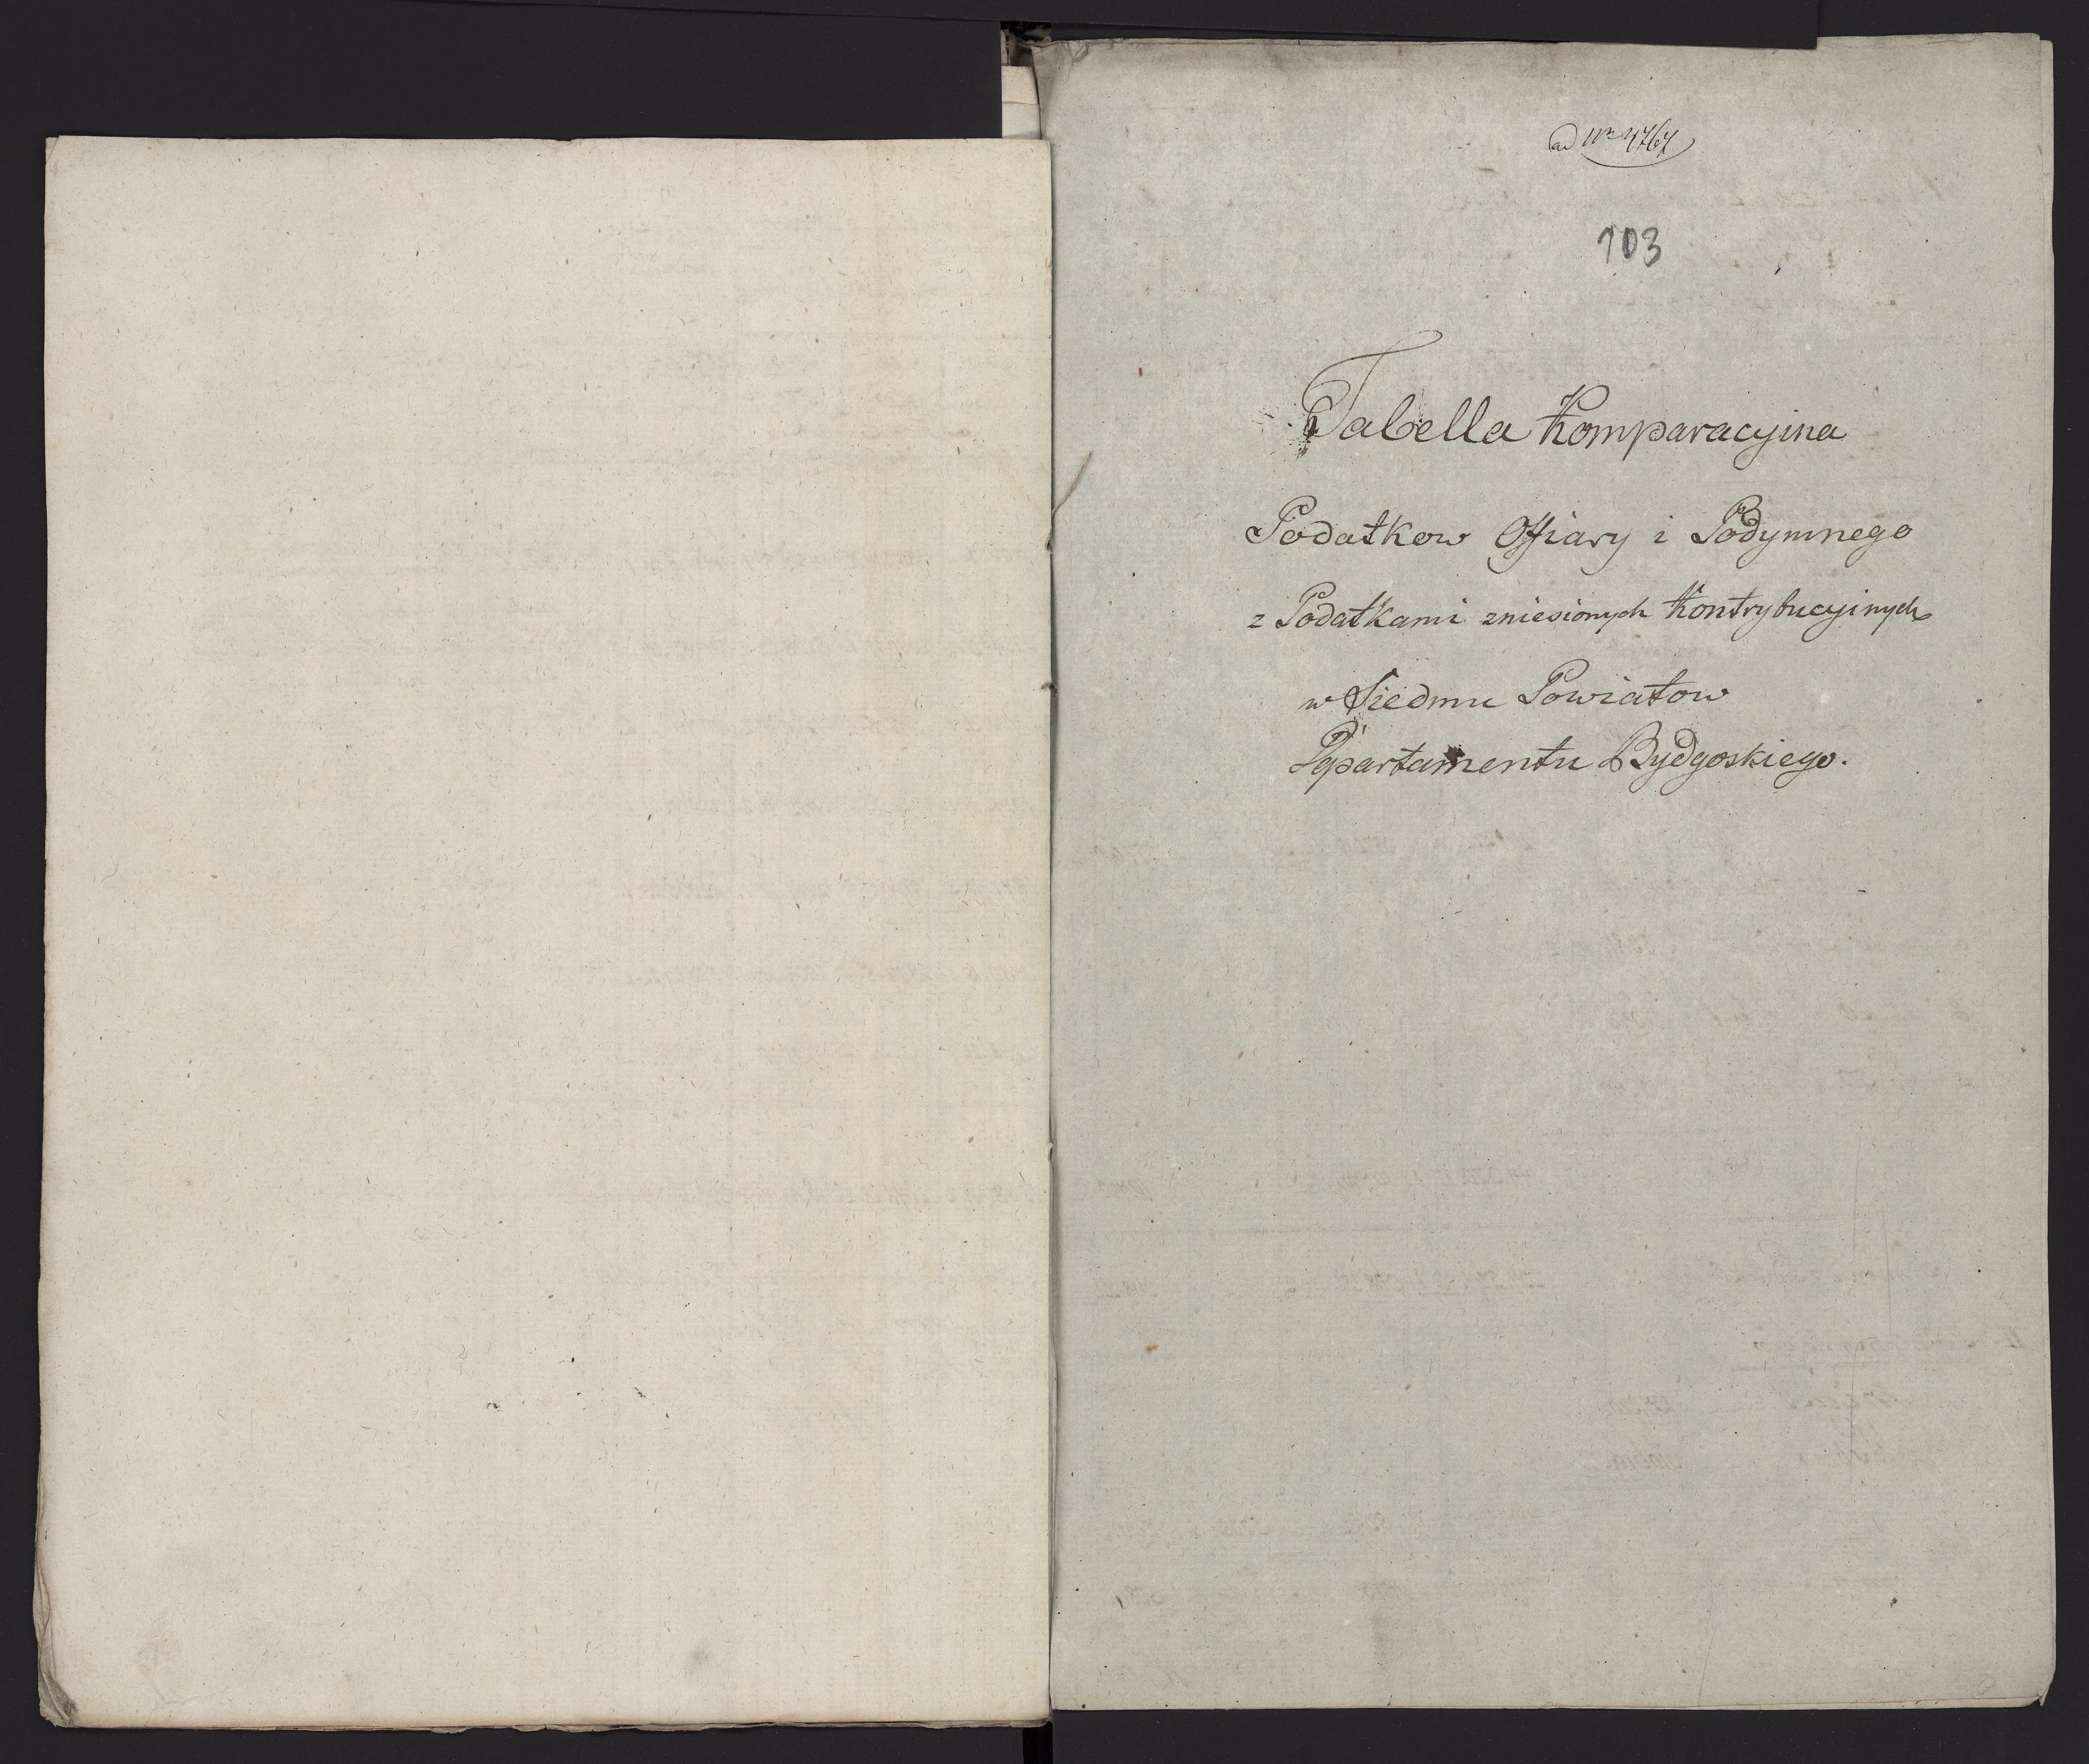 ad Nro 4767
103
Tabella Komparacyina
Podatkow Offiary i Podymnego
z Podatkami zniesionych Kontrybucyinych
w Siedmu Powiatow
Departamentu Bydgoskiego.